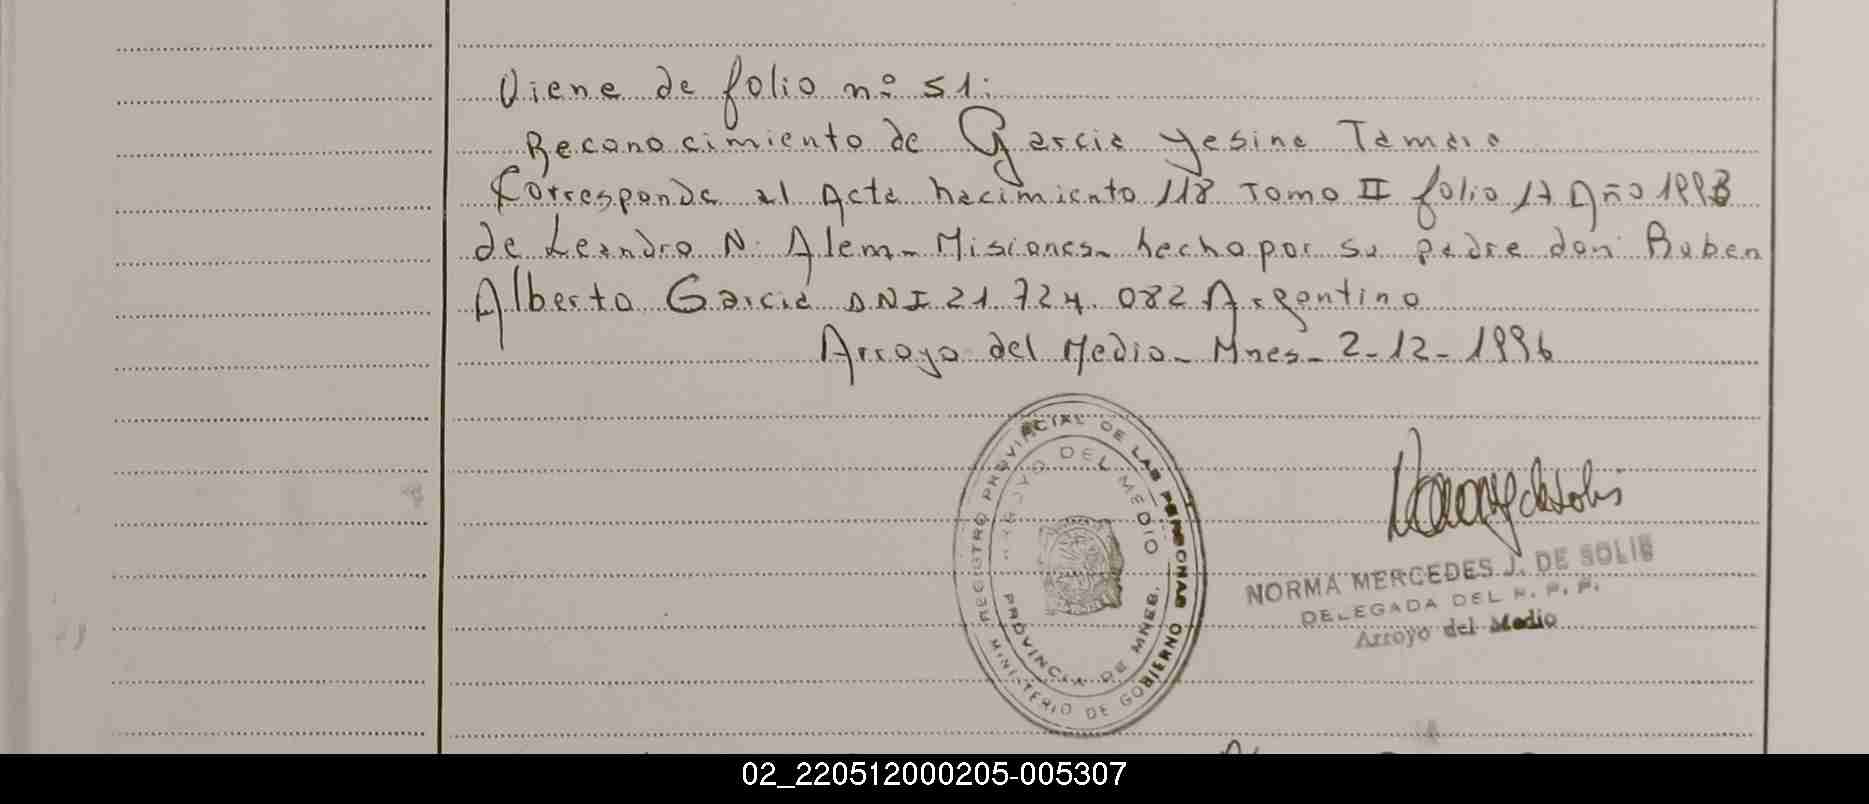 Viene de folio nº 51:
Reconocimiento de Garcia Yesina Tamara
Corresponde al Acta nacimiento 118 Tomo II folio 17 Año 1993
de Leandro N. Alem - Misiones - hecho por su padre don: Ruben
Alberto Garcia DNI 21.724.082 Argentino
Arroyo del Medio - Mnes - 2-12-1996
REGISTRO PROVINCIAL DE LAS PERSONAS
MINISTERIO DE GOBIERNO
ARROYO DEL MEDIO
PROVINCIA DE MNES.
NORMA MERCEDES J. DE SOLIS
DELEGADA DEL R. P. P.
Arroyo del Medio
02_220512000205-005307